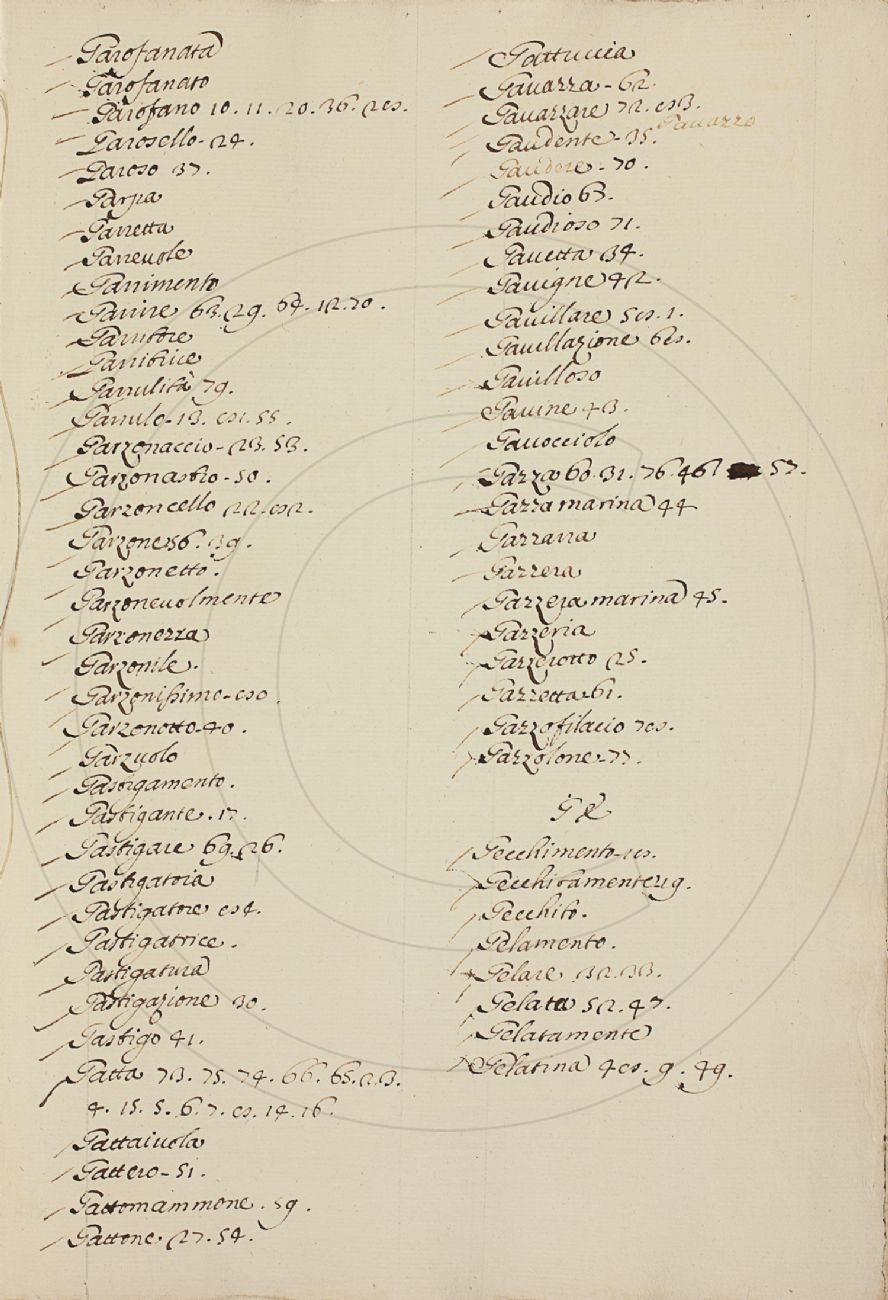 Garofanata
Garofanato
Garofano 10. 11. 20. 36. 28.
Garosello - 24.
Garoso 37.
Garpa
Garretta
Garrevole
Garrimento
Garrire 63. 29. 64. 12. 70.
Garritore
Garritrice
Garrulità 79.
Garrulo - 13. 81. 55.
Garzonaccio - 23. 53.
Garzonastro - 50.
Garzoncello 22. 82.
Garzone 56. 39.
Garzonetto.
Garzonevolmente
Garzonezza
Garzonile.
Garzonissimo - 80.
Garzonotto - 40.
Garzuolo
Gastigamento.
Gastigante. 17.
Gastigare 69. 26.
Gastigatoia
Gastigatore 84.
Gastigatrice.
Gastigatura
Gastigazione 30.
Gastigo 41.
Gatta 73. 75. 74. 66. 65. 2. 3.
4. 15. 5. 6. 7. 8. 14. 16.
Gattaiuola
Gattero - 51.
Gattomammone. 59.
Gattone. 27. 54.
Gattuccia
Gavazza - 62.
Gavazzare 72. 83.
Gavazzo
Gaudente - 35.
Gaudere - 70.
Gaudio 63.
Gaudioso 71.
Gavetta 34.
Gavigne 42.
Gavillare 58. 1.
Gavillazione 68.
Gavilloso
Gavine 43.
Gavocciolo
Gazza 60. 31. 76. 46 57.
Gazza marina 44
Gazzarra
Gazzera
Gazzera marina 45.
Gazzeria
Gazzerotto 25.
Gazzetta - 61.
Gazzofilacio 78.
Gazzolone - 77.
GE
Gecchimento - 18.
Gecchitamente 19.
Gecchito.
Gelamento.
Gelare 32. 33.
Gelata 52. 47.
Gelatamente
Gelatina 48. 9. 49.